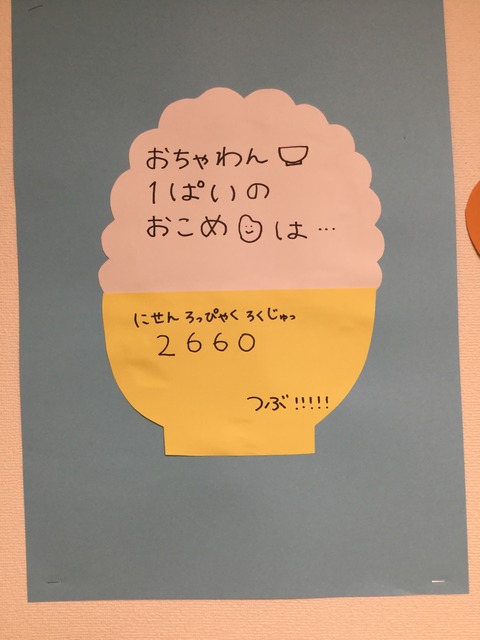 おちゃわん
1ぱいの
おこめは…
にせん ろっぴゃく ろくじゅっ
2660
つぶ!!!!!